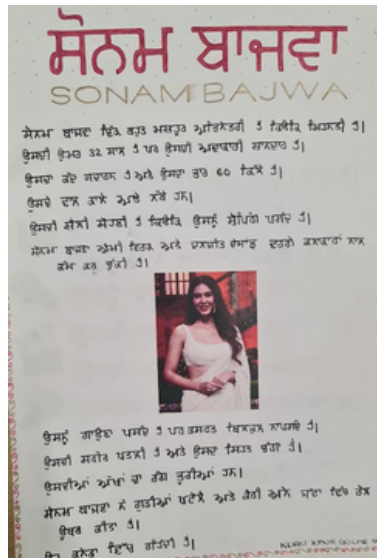 ਸੋਨਮ ਬਾਜਵਾ
SONAM BAJWA
ਸੋਨਮ ਬਾਜਵਾ ਇੱਕ ਬਹੁਤ ਮਸ਼ਹੂਰ ਅਭਿਨੇਤਰੀ ਹੈ ਕਿਉਂਕਿ ਮਿਹਨਤੀ ਹੈ।
ਉਸਦੀ ਉਮਰ 32 ਸਾਲ ਹੈ ਪਰ ਉਸਦੀ ਅਦਾਕਾਰੀ ਸ਼ਾਨਦਾਰ ਹੈ।
ਉਸਦਾ ਕੱਦ ਸਧਾਰਨ ਹੈ ਅਤੇ ਉਸਦਾ ਭਾਰ 60 ਕਿੱਲੋ ਹੈ।
ਉਸਦੇ ਵਾਲ ਕਾਲੇ ਅਤੇ ਲੰਬੇ ਹਨ।
ਉਸਦੀ ਸ਼ੈਲੀ ਸੋਹਣੀ ਹੈ ਕਿਉਂਕਿ ਉਸਨੂੰ ਸ਼ੌਪਿੰਗ ਪਸੰਦ ਹੈ।
ਸੋਨਮ ਬਾਜਵਾ ਐਮੀ ਵਿਰਕ ਅਤੇ ਦਲਜੀਤ ਦੋਸਾਂਝ ਵਰਗੇ ਕਲਾਕਾਰਾਂ ਨਾਲ
ਕੰਮ ਕਰ ਚੁੱਕੀ ਹੈ।
ਉਸਨੂੰ ਗਾਉਣਾ ਪਸੰਦ ਹੈ ਪਰ ਕਸਰਤ ਬਿਲਕੁਲ ਨਾਪਸੰਦ ਹੈ।
ਉਸਦੀ ਸਰੀਰ ਪਤਲੀ ਹੈ ਅਤੇ ਉਸਦਾ ਸਿਹਤ ਚੰਗਾ ਹੈ।
ਉਸਦੀਆਂ ਅੱਖਾਂ ਦਾ ਰੰਗ ਭੂਰੀਆਂ ਹਨ।
ਸੋਨਮ ਬਾਜਵਾ ਨੇ ਗੁਡੀਆਂ ਪਟੋਲੇ ਅਤੇ ਕੈਰੀ ਆਨ ਜੱਟਾ ਵਿੱਚ ਰੋਲ
ਕੀਤਾ ਹੈ।
ਰਹਿੰਦੀ ਹੈ।
KAUR